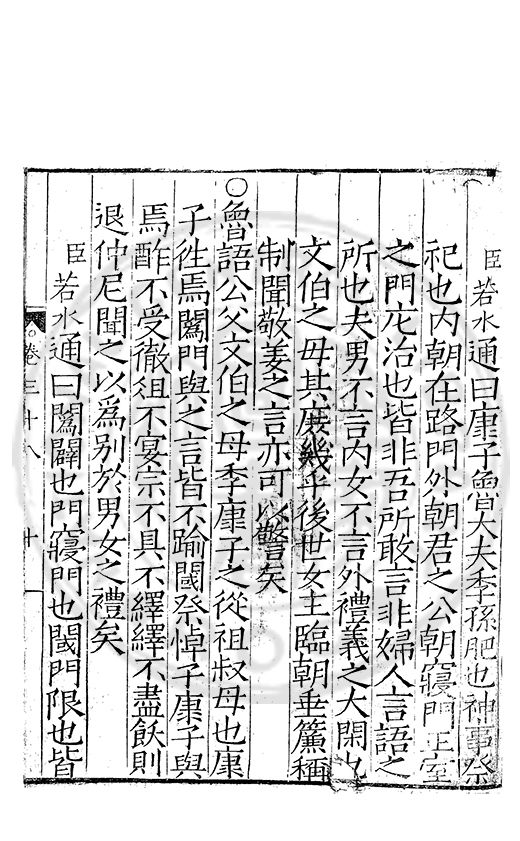 臣若水通曰康子魯大夫季孫肥也神事祭
祀也内朝在路門外朝君之公朝寢門正室
之門庀治也皆非吾所敢言非婦人言語之
所也夫男不言内女不言外禮義之大閑也
文伯之母其庶幾乎後世女主臨朝垂簾稱
制聞敬姜之言亦可以警矣
○魯語公父文伯之母季康子之從祖叔母也康
子徃焉䦱門與之言皆不踰閾祭悼子康子與
焉酢不受徹俎不宴宗不具不繹繹不盡飫則
退仲尼聞之以爲别於男女之禮矣
臣若水通曰䦱闢也門寢門也閾門限也皆
卷三十八
十